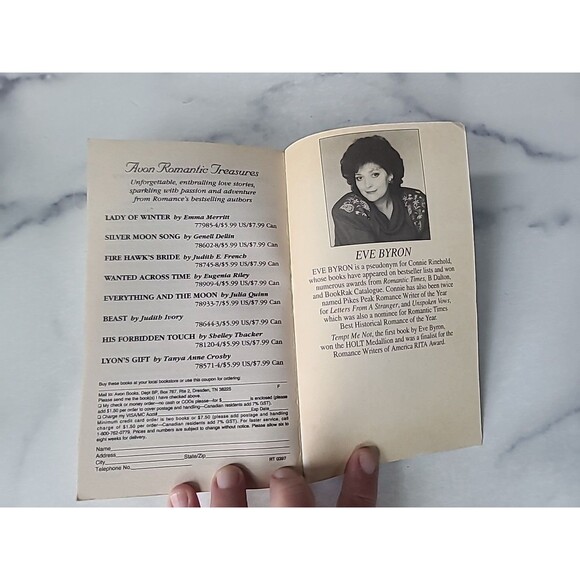 Avon Romantic Treasures
Unforgettable, enthralling love stories,
sparkling with passion and adventure
from Romance's bestselling authors
LADY OF WINTER by Emma Merritt
77985-4/$5.99 US/$7.99 Can
SILVER MOON SONG by Genell Dellin
78602-8/$5.99 US/$7.99 Can
FIRE HAWK'S BRIDE by Judith E. French
78745-8/$5.99 US/$7.99 Can
WANTED ACROSS TIME by Eugenia Riley
78909-4/$5.99 US/$7.99 Can
EVERYTHING AND THE MOON by Julia Quinn
78933-7/$5.99 US/$7.99 Can
BEAST by Judith Ivory
78644-3/$5.99 US/$7.99 Can
HIS FORBIDDEN TOUCH by Shelley Thacker
78120-4/$5.99 US/$7.99 Can
LYON'S GIFT by Tanya Anne Crosby
78571-4/$5.99 US/$7.99 Can
Buy these books at your local bookstore or use this coupon for ordering:
Mail to: Avon Books, Dept BP, Box 767, Rte 2, Dresden, TN 38225 F
Please send me the book(s) I have checked above.
❑ My check or money order—no cash or CODs please—for $ is enclosed (please
add $1.50 per order to cover postage and handling—Canadian residents add 7% GST).
❑ Charge my VISA/MC Acct# Exp Date
Minimum credit card order is two books or $7.50 (please add postage and handling
charge of $1.50 per order—Canadian residents add 7% GST). For faster service, call
1-800-762-0779. Prices and numbers are subject to change without notice. Please allow six to
eight weeks for delivery.
Name
Address
City State/Zip
Telephone No. RT 0397
EVE BYRON
EVE BYRON is a pseudonym for Connie Rinehold,
whose books have appeared on bestseller lists and won
numerous awards from Romantic Times, B Dalton,
and BookRak Catalogue. Connie has also been twice
named Pikes Peak Romance Writer of the Year
for Letters From A Stranger, and Unspoken Vows,
which was also a nominee for Romantic Times
Best Historical Romance of the Year.
Tempt Me Not, the first book by Eve Byron,
won the HOLT Medallion and was a finalist for the
Romance Writers of America RITA Award.